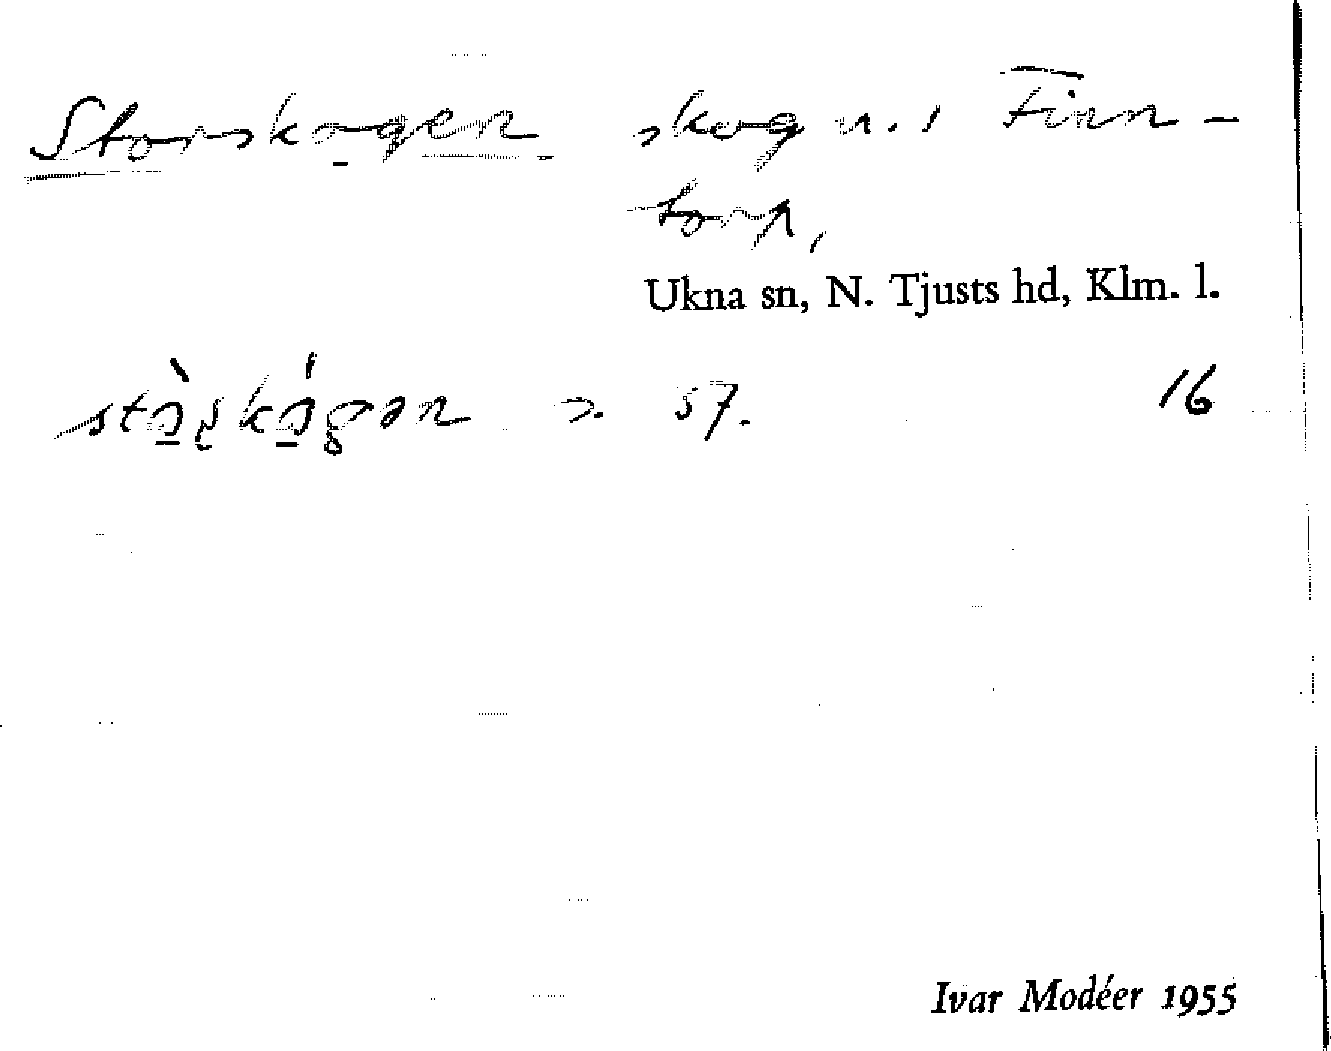 Storskogen skog n. i Finn-
torp,
Ukna sn, N. Tjusts hd, Klm. l.
57. 16
Ivar Modéer 1955